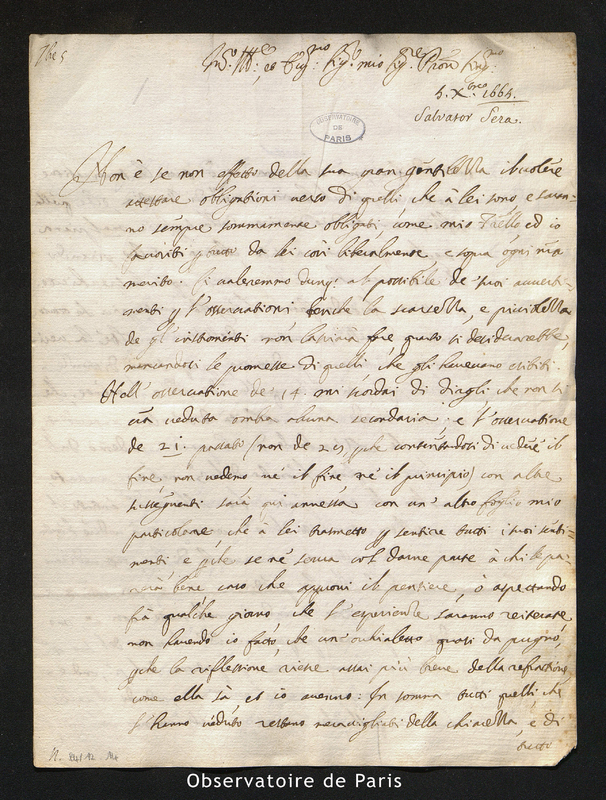 5. Xbre 1665.
Salvator Sera.
OBSERVATOIRE
DE
PARIS
Non è se non effetto della sua gran gentilezza il volere
attestare obligationi verso di quelli che à lei sono, e saran-
no sempre sommamente obligati come mio fratello ed io
favoriti da lei così liberalmente e sopra ogni
merito. Ci valeremmo al possibile de' suoi averti-
menti l'osservationi benche la scarsezza, e piccolezza
de gl'instromenti non lascia fare quanto si desiderarebbe,
mancandoci le promesse di quelli che gli havevano esibiti.
Nell'osservatione de 14. mi scordai di dirgli che non si
era veduta ombra alcuna secondaria; e l'osservatione
de 21. passato (non de 20, di vedere il
fine, non vedemo né il fine né il principio) con altre
susseguenti sarà qui annessa con un' altro foglio mio
particolare, che à lei trasmetto sentire tutti i suoi senti-
menti e se né possa col darne parte à chi le pa-
rerà bene caso che approvi il pensiere, ò aspettando
frà qualche giorno che l'esperienze saranno reiterate
non havendo io fatto che un' occhialetto quasi da pugno,
la riflessione riesce assai più breve della refrattione,
come ella sà, et io: In somma tutti quelli che
l'hanno veduto restano meravigliati della chiarezza, e di
tutto
Observatoire de Paris